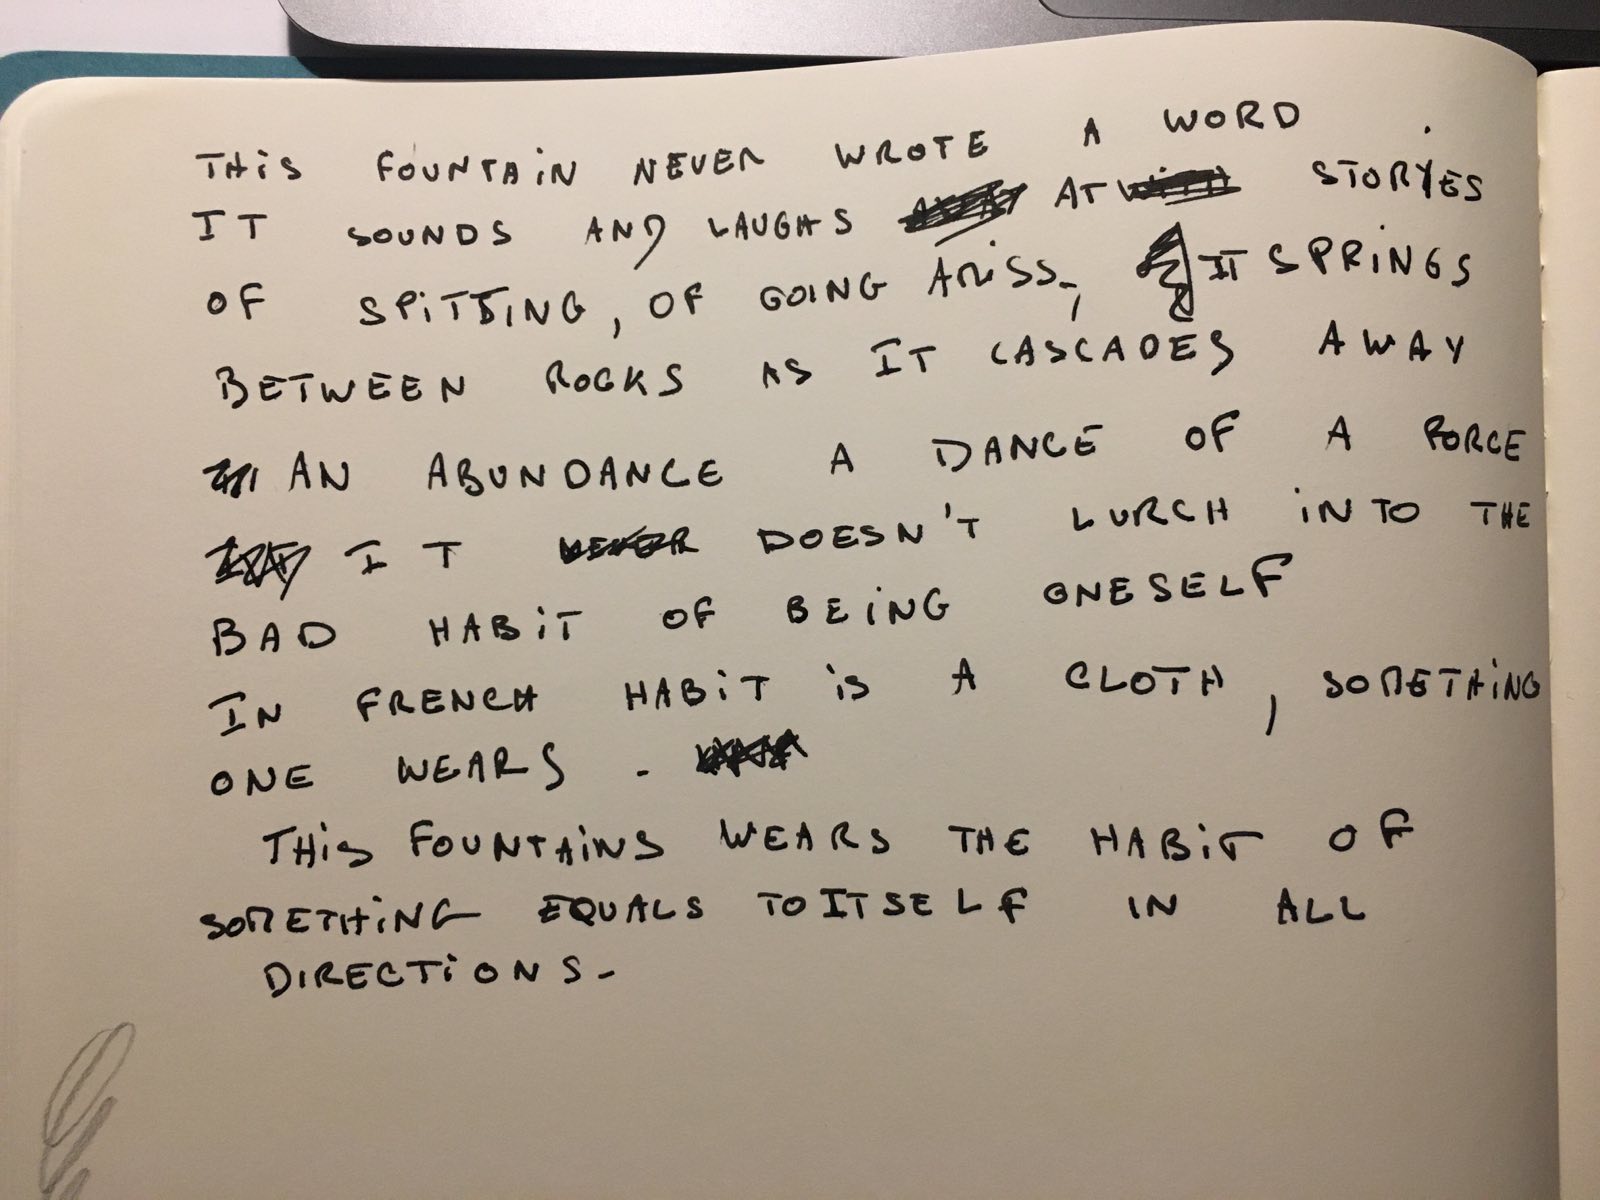 THiS FOUNTAiN NEVER WROTE A WORD
IT SOUNDS AND LAUGHS AT STORYES
OF SPiTTING, OF GOING AMiSS, IT SPRiNGS
BETWEEN ROCKS AS IT CASCADES AWAY
AN ABUNDANCE A DANCE OF A FORCE
IT DOESN'T LURCH iNTO THE
BAD HABiT OF BEiNG ONESELF
IN FRENCH HABiT iS A CLOTH, SOMETHiNG
ONE WEARS -
THiS FOUNTAiNS WEARS THE HABiT OF
SOMETHiNG EQUALS TO ITSELF IN ALL
DIRECTiONS -